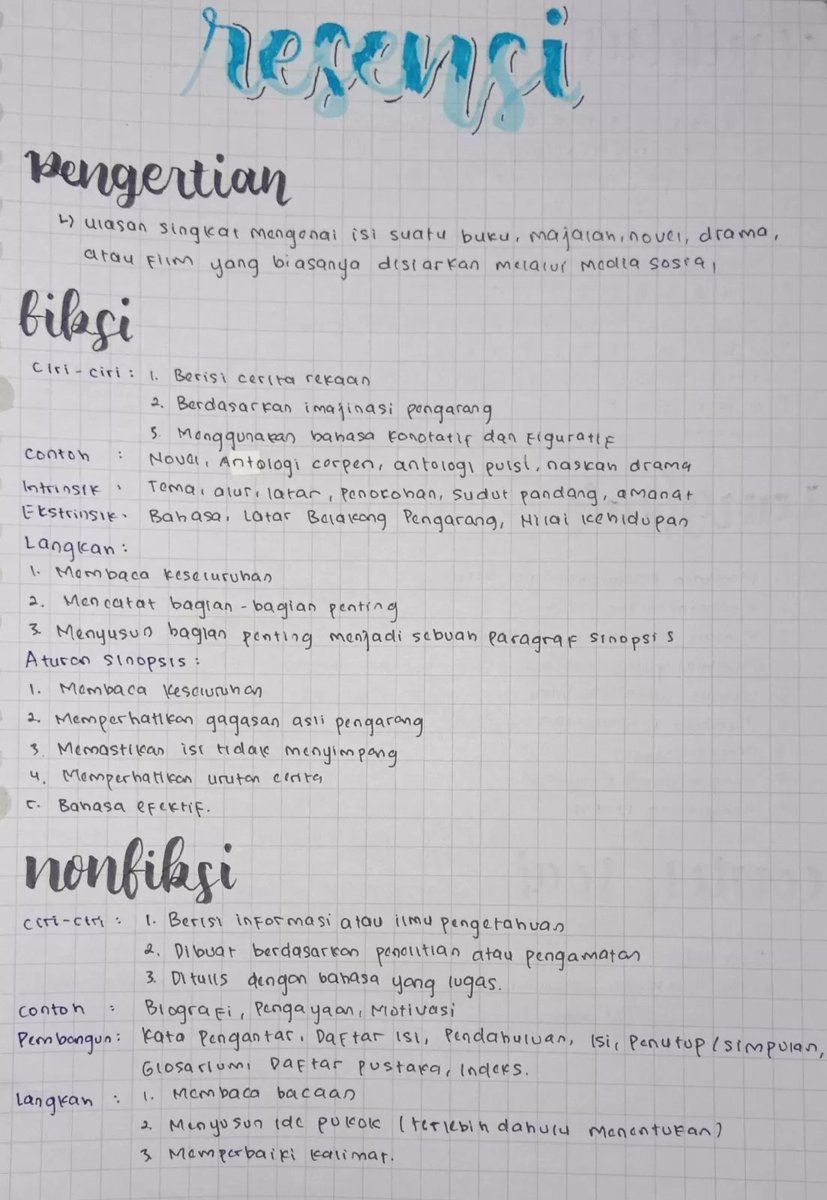 resensi
pengertian
↳ ulasan singkat mengenai isi suatu buku, majalah, novel, drama,
atau film yang biasanya disiarkan melalui media sosial
fiksi
Ciri-ciri : 1. Berisi cerita rekaan
2. Berdasarkan imajinasi pengarang
3. Menggunakan bahasa konotatif dan figuratif
Contoh : Novel, Antologi cerpen, antologi puisi, naskah drama
Intrinsik : Tema, alur, latar, penokohan, sudut pandang, amanat
Ekstrinsik : Bahasa, Latar Belakang Pengarang, Nilai kehidupan
Langkah :
1. Membaca keseluruhan
2. Mencatat bagian-bagian penting
3. Menyusun bagian penting menjadi sebuah paragraf sinopsis
Aturan sinopsis :
1. Membaca keseluruhan
2. Memperhatikan gagasan asli pengarang
3. Memastikan isi tidak menyimpang
4. Memperhatikan urutan cerita
5. Bahasa efektif.
nonfiksi
Ciri-ciri : 1. Berisi informasi atau ilmu pengetahuan
2. Dibuat berdasarkan penelitian atau pengamatan
3. Ditulis dengan bahasa yang lugas.
Contoh : Biografi, Pengayaan, Motivasi
Pembangun : Kata Pengantar, Daftar Isi, Pendahuluan, Isi, Penutup/simpulan,
Glosarium, Daftar pustaka, Indeks.
Langkah : 1. Membaca bacaan
2. Menyusun ide pokok (terlebih dahulu menentukan)
3. Memperbaiki kalimat.